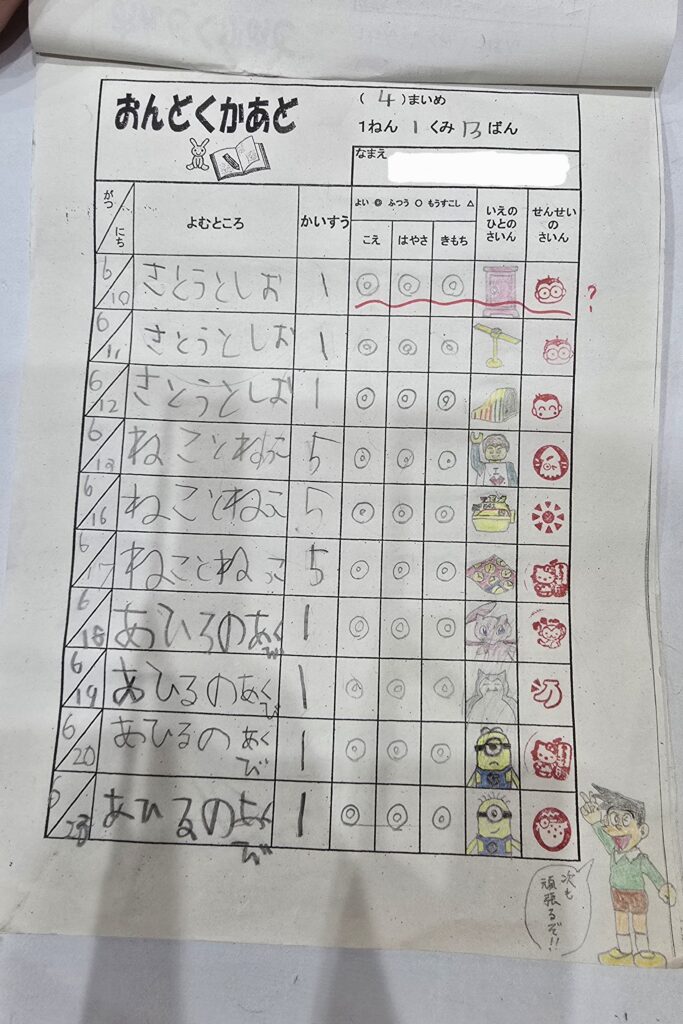 おんどくかあど
( 4 )まいめ
1ねん 1 くみ 13 ばん
なまえ
がつ にち
よむところ
かいすう
よい ◎ ふつう ○ もうすこし △
こえ はやさ きもち
いえの ひとの さいん
せんせい の さいん
6/10 さとうとしお 1 ◎ ◎ ◎ ?
6/11 さとうとしお 1 ◎ ◎ ◎
6/12 さとうとしお 1 ◎ ◎ ◎
6/ ねことねっこ 5 ◎ ◎ ◎
6/16 ねことねっこ 5 ◎ ◎ ◎
6/17 ねことねっこ 5 ◎ ◎ ◎
6/18 あひるのあくび 1 ◎ ◎ ◎
6/19 あひるのあくび 1 ◎ ◎ ◎
6/20 あひるのあくび 1 ◎ ◎ ◎
6/23 あひるのあくび 1 ◎ ◎ ◎
次も
頑張るぞ!!